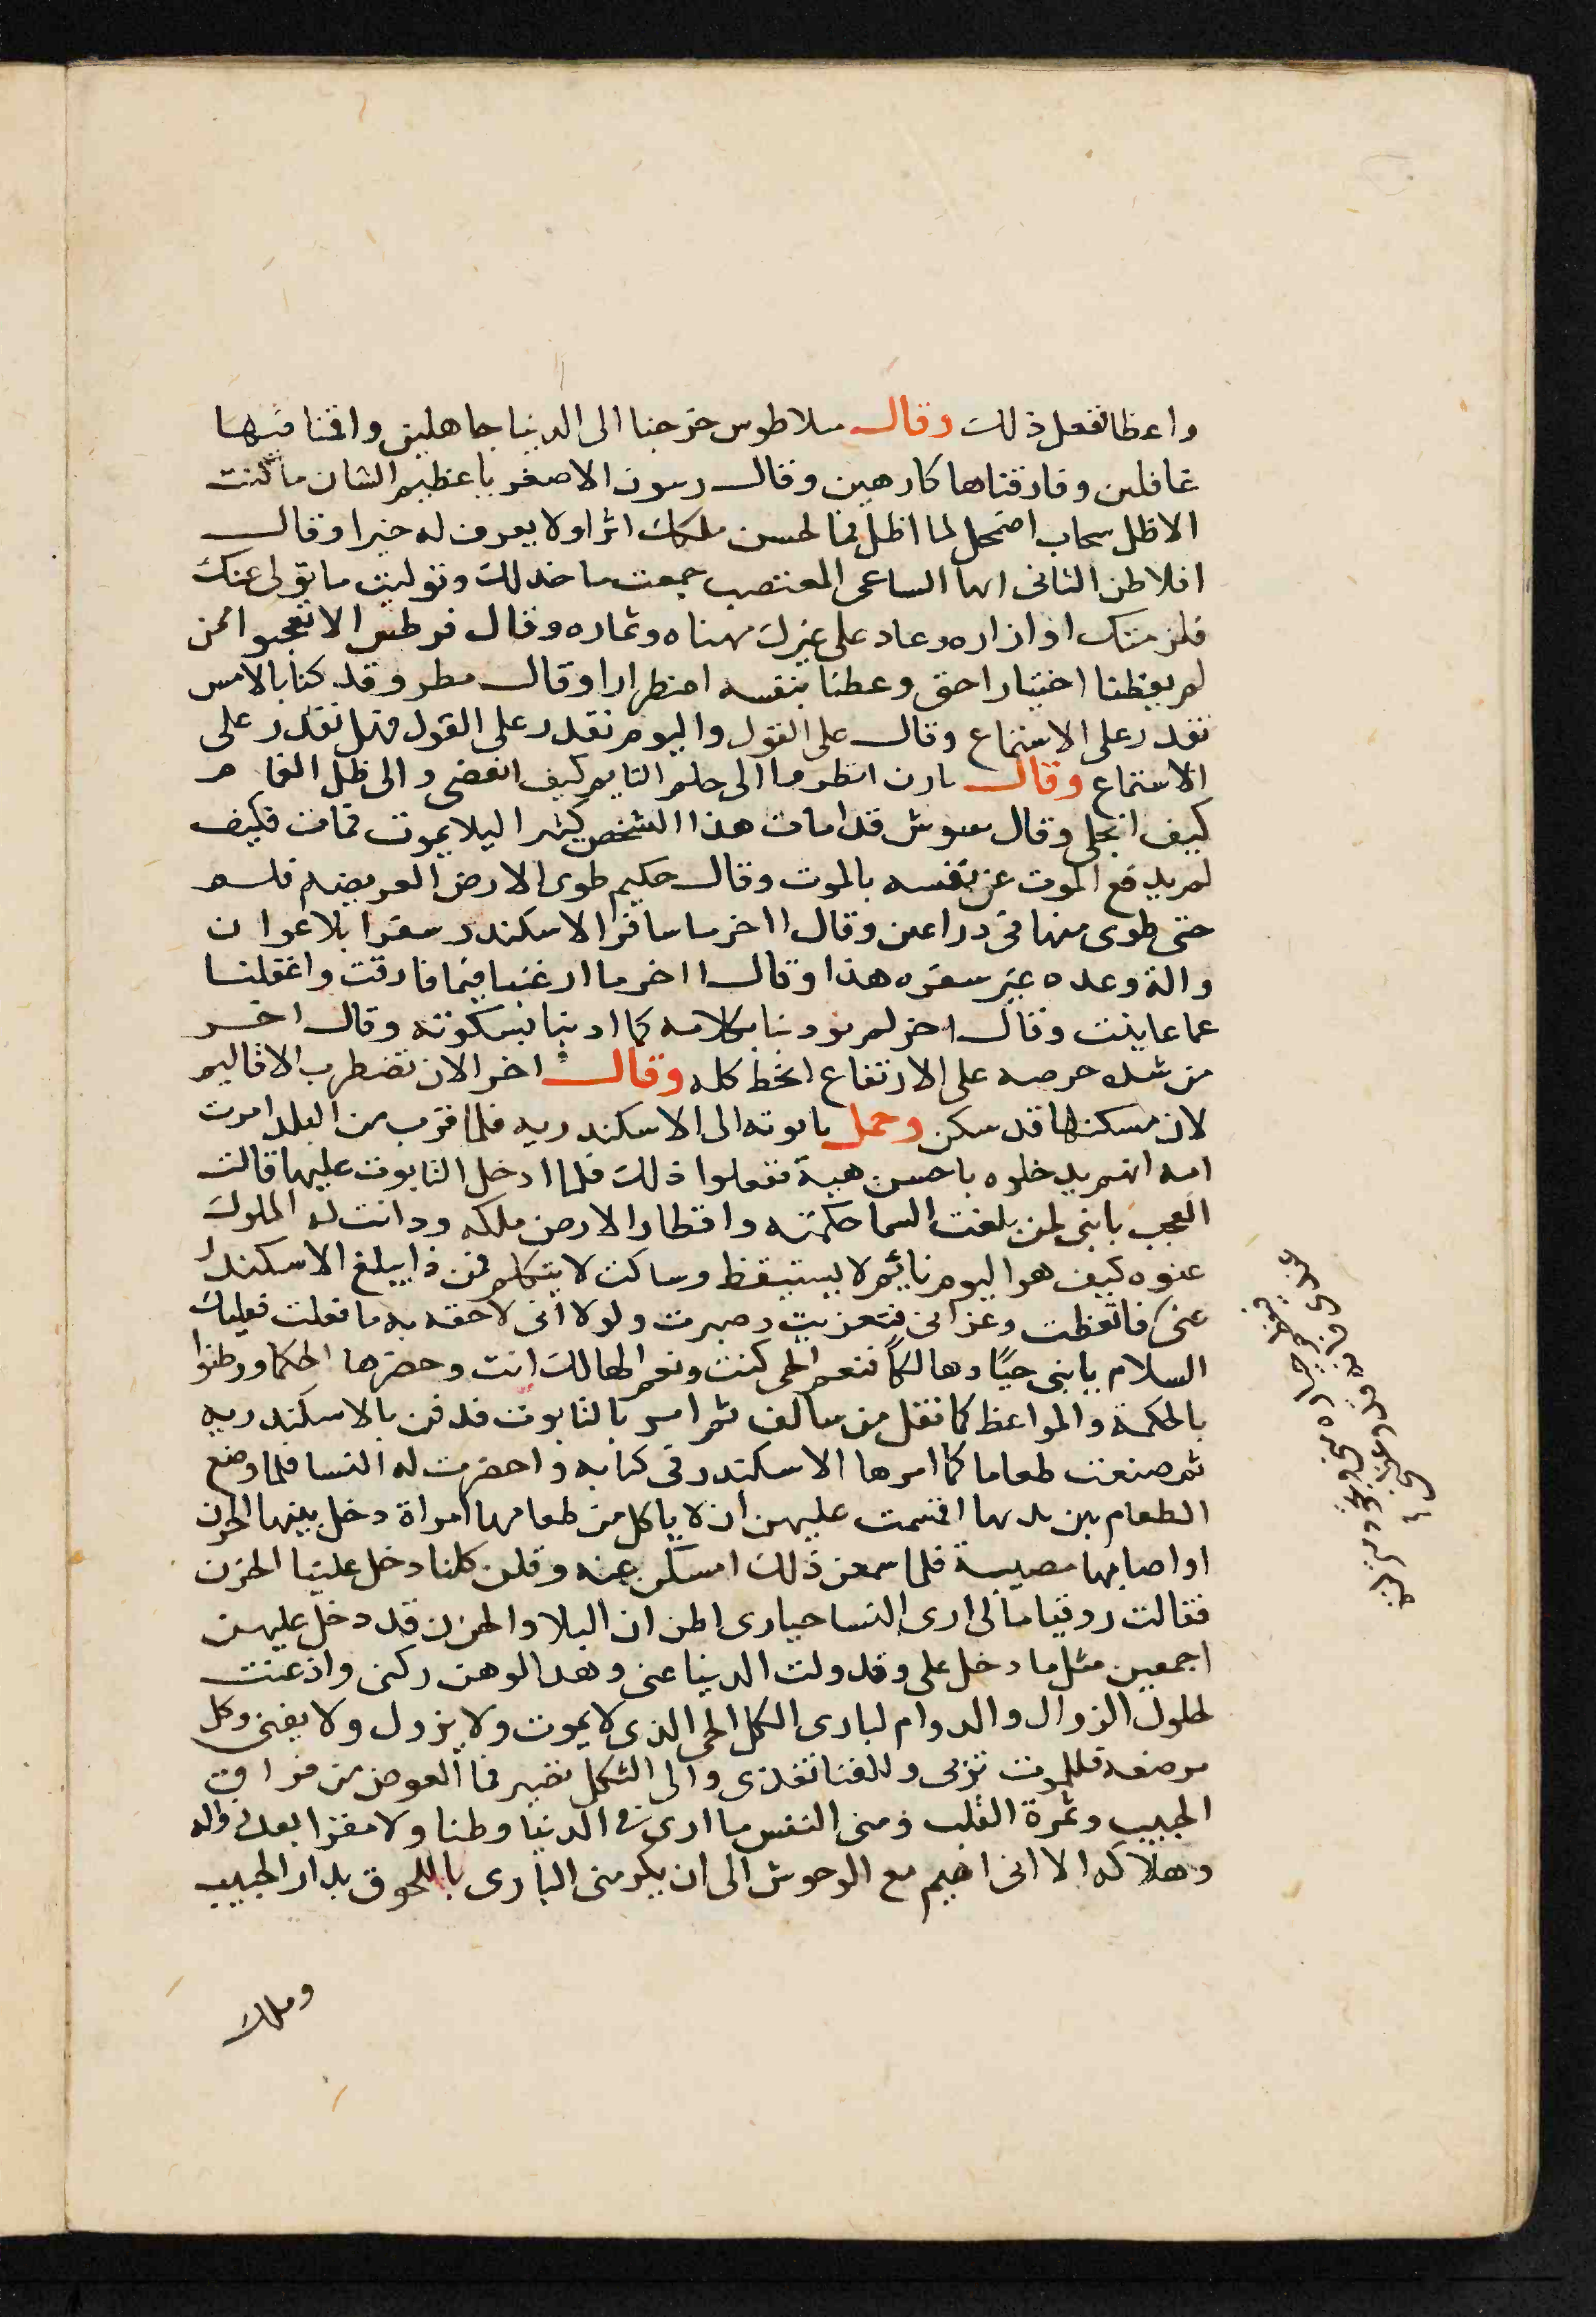 واعظا فعل ذلك وقال سلاطوس خرجنا الى الدنيا جاهلين واقمنا فيها
غافلين وفارقناها كارهين وقال رسون الاصغر يا عظيم الشان ما كنت
الا ظل سحاب اضمحل لما اظل فما نحسن ملكك اثرا ولا يعرف له خبرا وقال
افلاطن الثانى ايها الساعى المغتصب جمعت ما خذلك وتوليت ما تولى عنك
فلزمتك اوزاره وعاد على غيرك مهناه وثماره وقال فوطس الا تعجبوا ممن
لم يعظنا اختيارا حتى وعظنا بنفسه اضطرارا وقال مطر وقد كنا بالامس
نقدر على الاستماع وقال على القول واليوم نقدر على القول فهل نقدر على
الاستماع وقال ىارن انظروا الى حلم النايم كيف انقضى والى ظل الغمام
كيف انجلى وقال سوس قد امات هذا الشخص كثيرا ليلا يموت فمات فكيف
لم يدفع الموت عن نفسه بالموت وقال حكيم طوى الارض العريضه فلم
حتى طوى منها فى ذراعين وقال اخر ما سافر الاسكندر سفرا بلا اعوان
والة وعده غير سفره هذا وقال اخر ما ارغبنا فيما فارقت واغفلنا
عما عاينت وقال اخر لم يودبنا بكلامه كما ادبنا بسكوته وقال اخر
من شده حرصه على الارتفاع انحط كله وقال اخر الان تضطرب الاقاليم
لان مسكنها قد سكن وحمل تابوته الى الاسكندريه فلما قرب من البلد امرت
امه انهم يدخلوه باحسن هيبة ففعلوا ذلك فلما ادخل التابوت عليها قالت
العجب يا بنى لمن بلغت السما حكمته واقطار الارض ملكه ودانت له الملوك
عنوه كيف هو اليوم نائم لا يستيقظ وساكت لا يتكلم فمن ذا يبلغ الاسكندر
عنى فاتعظت وعزانى فتعزيت وصبرت ولولا انى لاحقه به ما فعلت فعليك
السلام يا بنى حيا وهالكا فنعم الحى كنت ونعم الهالك انت وحضرها الحكما ورطنوا
بالحكمة والمواعظ كما نقل من سالف ثم امر بالتابوت فدفن بالاسكندريه
ثم صنعت طعاما كما امرها الاسكندر فى كتابه واحضرت له النسا فلما وضع
الطعام بين يديها اقسمت عليهن ان لا ياكل من طعامها امراة دخل بيتها الحزن
او اصابها مصيبة فلما سمعن ذلك امسكن عنه وقلن كلنا دخل علينا الحزن
فقالت روقيا مالى ارى النسا حيارى اظن ان البلا والحزن قد دخل عليهن
اجمعين مثل ما دخل على وقد ولت الدنيا عنى وهد الوهن ركنى واذعنت
لحلول الزوال والدوام لبارى الكل الحى الذى لا يموت ولا يزول ولا يفنى وكل
مرضعة فللموت تربى وللفنا تغذى والى الثكل تصير فما العوض من فراق
الحبيب وثمرة القلب ومنى النفس ما ارى فى الدنيا وطنا ولا مفرا بعد زواله
وهلاكه الا انى اهيم مع الوحوش الى ان يكرمنى البارى باللحوق بدار الحبيب
وملاك